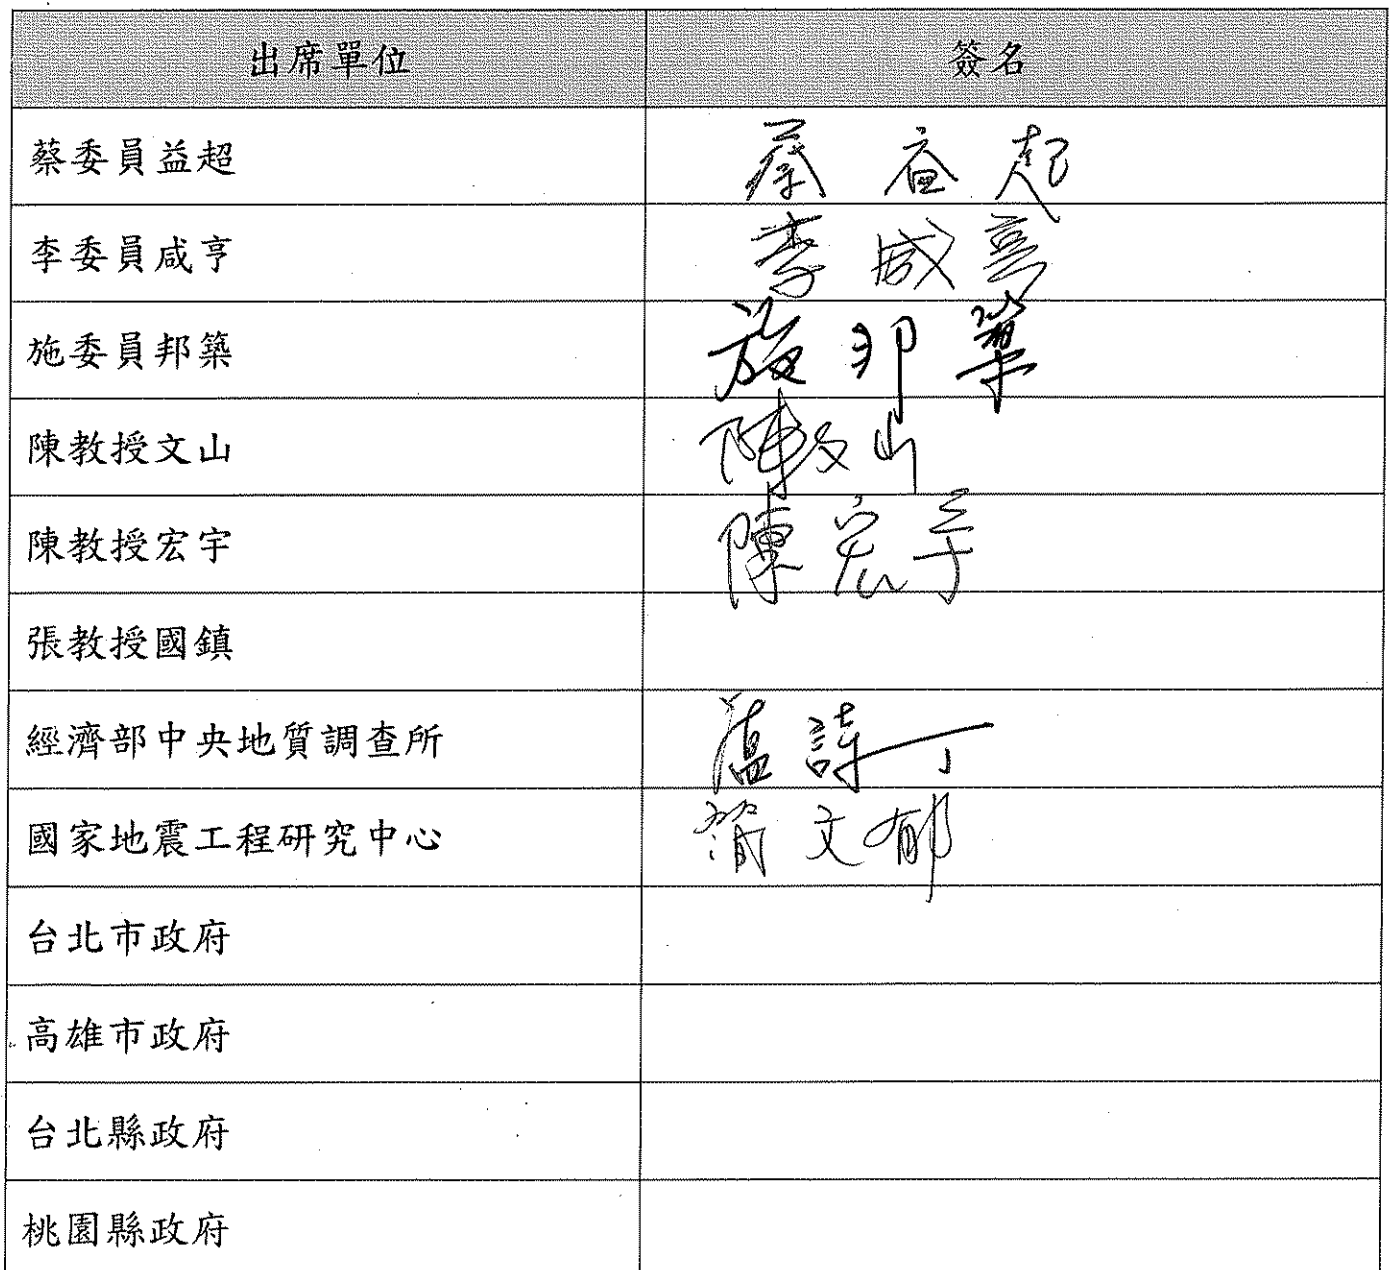 出席單位 簽名
蔡委員益超 蔡益超
李委員咸亨 李咸亨
施委員邦築 施邦築
陳教授文山 陳文山
陳教授宏宇 陳宏宇
張教授國鎮
經濟部中央地質調查所
國家地震工程研究中心 文郁
台北市政府
高雄市政府
台北縣政府
桃園縣政府